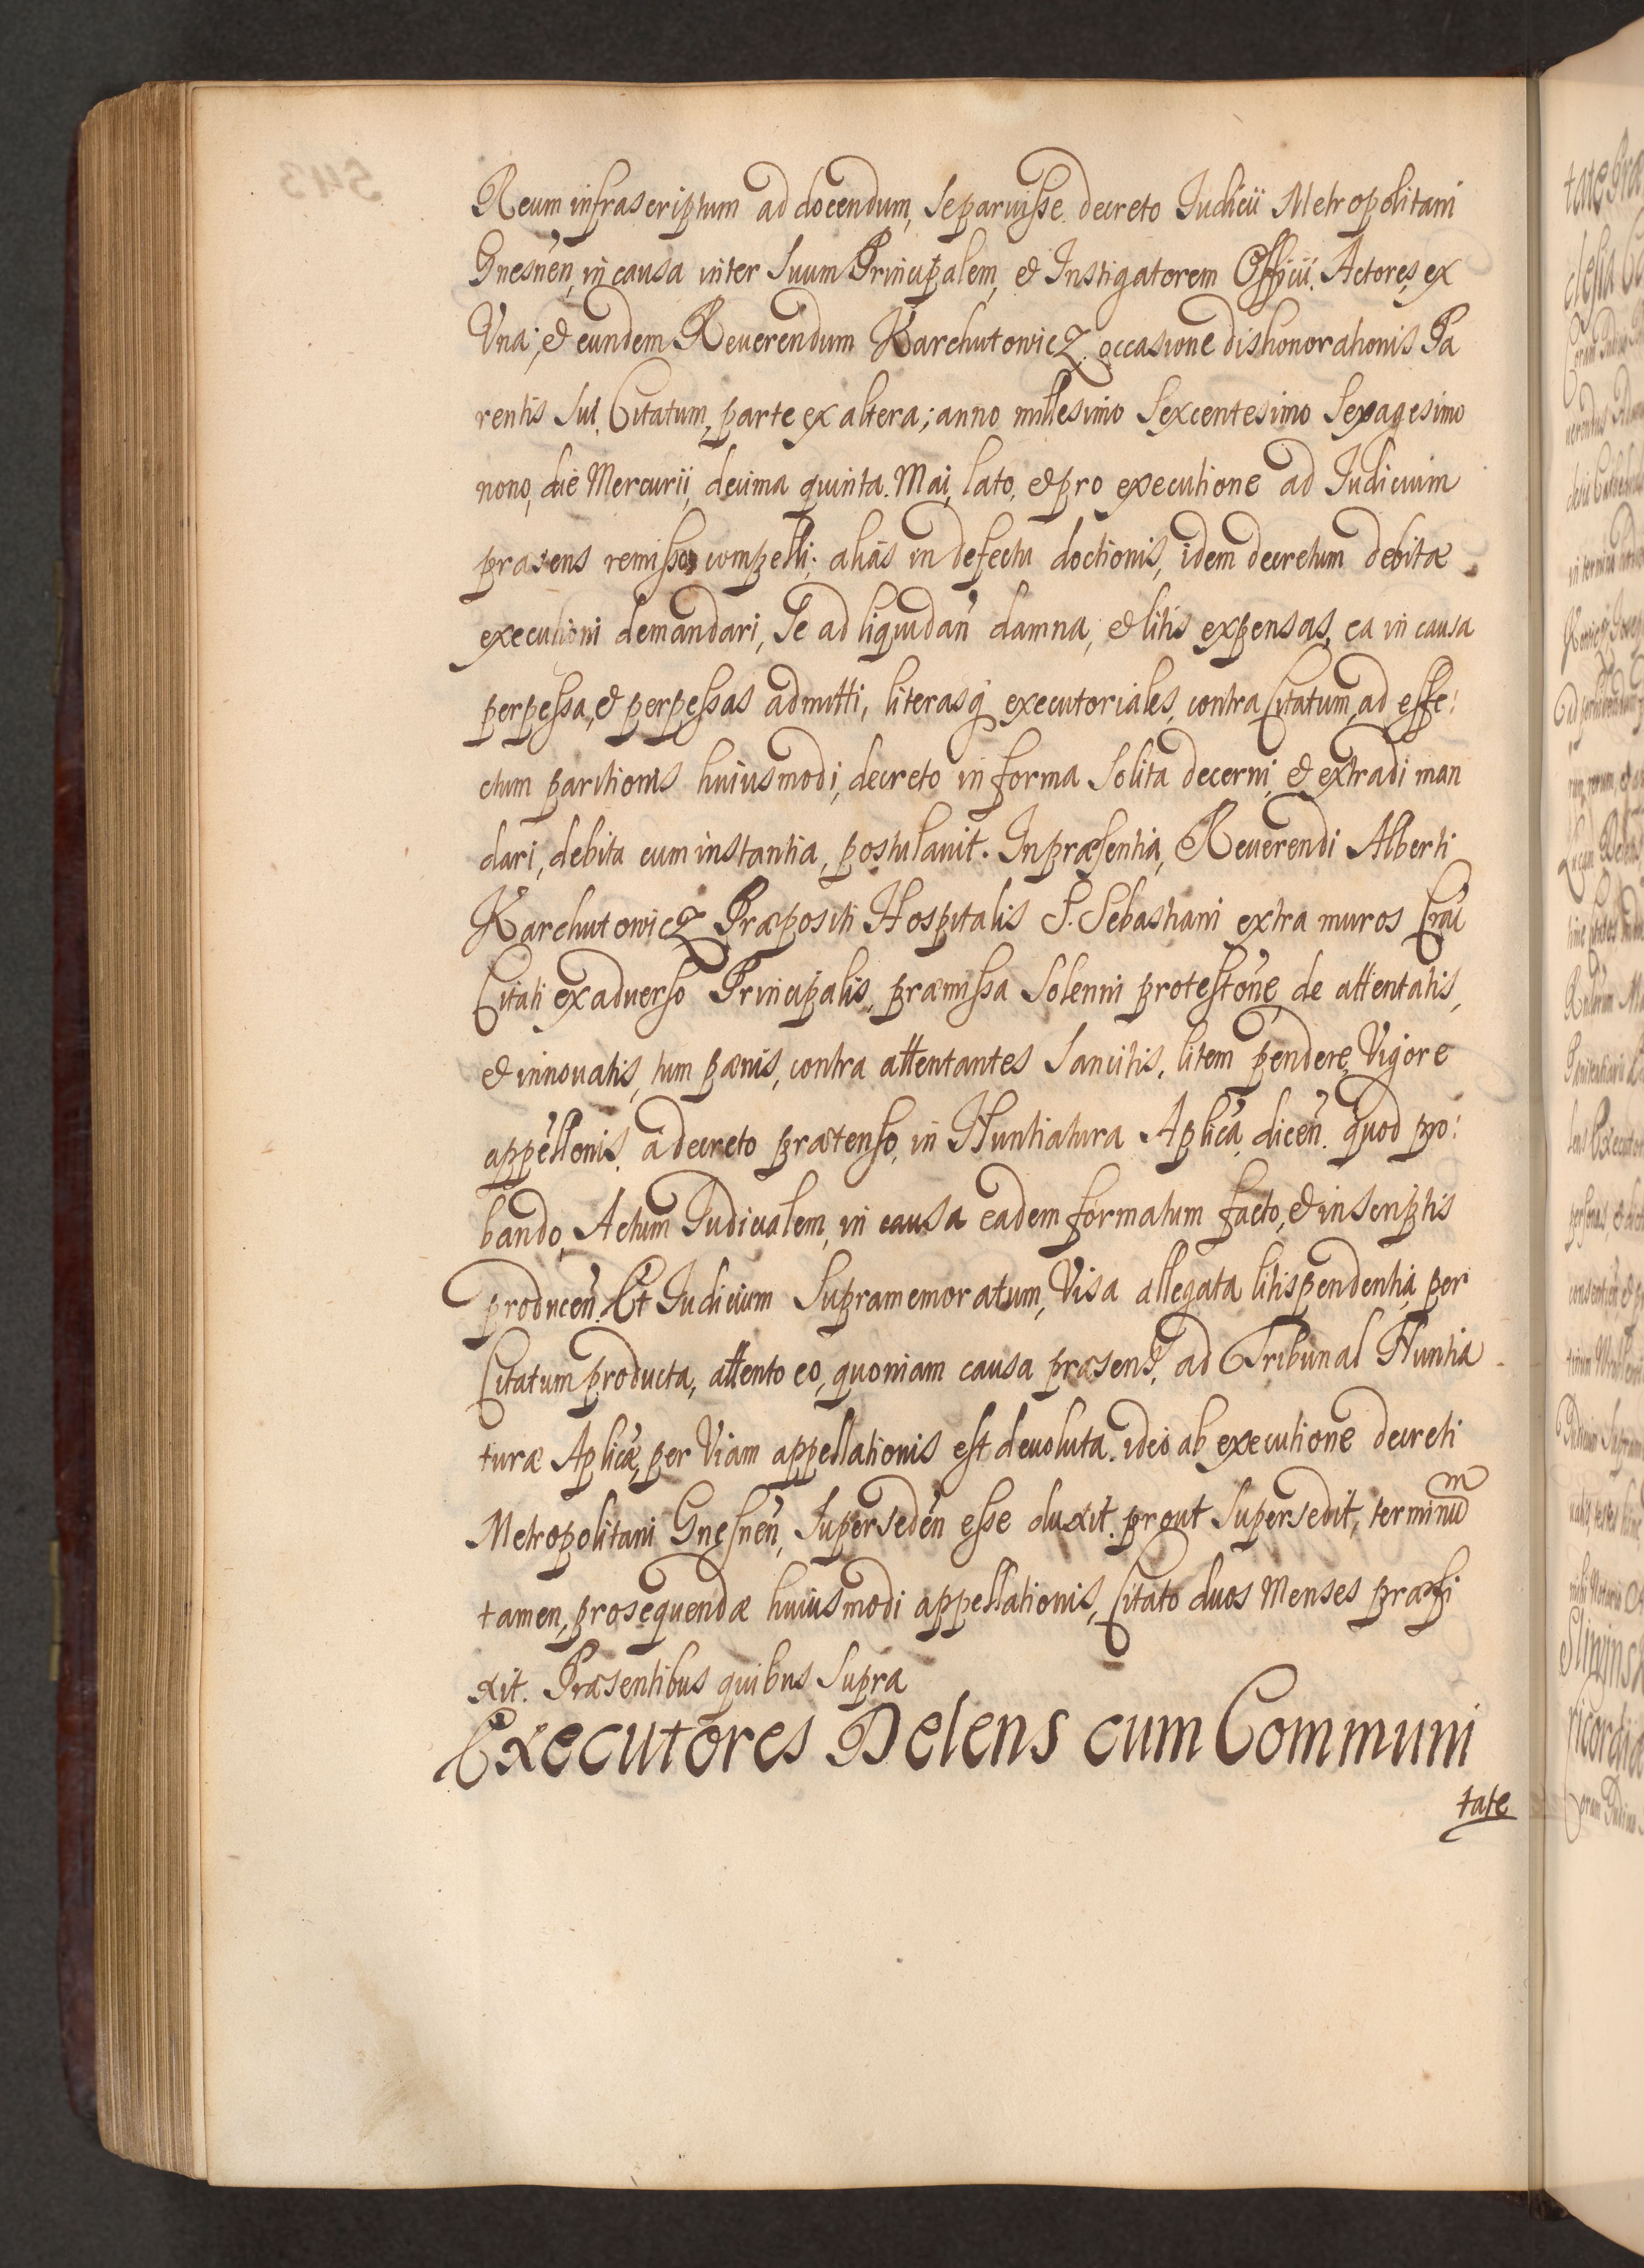 Reum infrascriptum ad docendum, se paruisse decreto Iudicii Metropolitani
Gnesnen, in causa inter suum Principalem, et Instigatorem Officii Actores, ex
Una, et eundem Reuerendum Karchutowicz occasione dishonorationis Pa
rentis sui Citatum, parte ex altera; anno millesimo sexcentesimo sexagesimo
nono, die Mercurii, decima quinta Mai, lato, et pro executione ad Iudicium
præsens remisso, compelli; alias in defectu doctionis, idem decretum debitæ
executioni demandari, Se ad liquidan damna, et litis expensas, ea in causa
perpessa, et perpessas admitti, literasq executoriales, contra Citatum, ad effe:
ctum paritionis huiusmodi, decreto in forma solita decerni, et extradi man
dari, debita cum instantia, postulauit. In præsentia, Reuerendi Alberti
Karchutowicz Præpositi Hospitalis S. Sebastiani extra muros Crac
Citati ex aduerso Principalis, præmissa solenni protestone, de attentatis,
et innouatis, tum pænis, contra attentantes sancitis, litem pendere, Vigore
appellonis, a decreto prætenso, in Nuntiatura Aplica, dicen. quod pro:
bando, Actum Iudicialem, in causa eadem formatum facto, et in scriptis
producen. Et Iudicium supramemoratum, Visa allegata litispendentia, per
Citatum producta, attento eo, quoniam causa præsens, ad Tribunal Nuntia
turæ Aplicæ, per Viam appellationis est deuoluta. ideo ab executione decreti
Metropolitani Gnesnen, supersedēn esse duxit. prout supersedit, terminum
tamen, prosequendæ huiusmodi appellationis, Citato duos Menses præfi
xit. Præsentibus quibus supra
Executores Delens cum Communi
tate